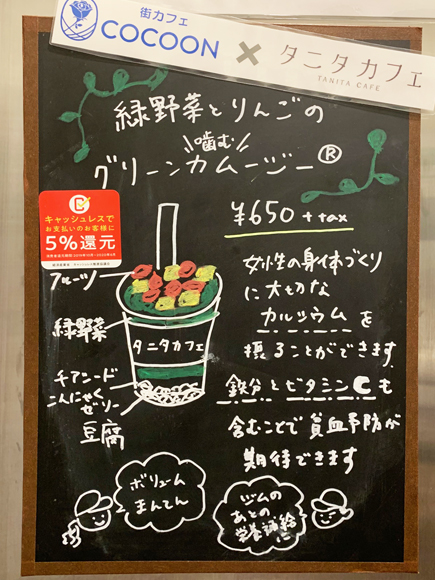 街カフェ
COCOON × タニタカフェ
TANITA CAFE
緑野菜とりんごの
噛む
グリーンカムージー®
キャッシュレスで
お支払いのお客様に
5%還元
¥650+tax
フルーツ
緑野菜
タニタカフェ
チアシード
こんにゃく
ゼリー
豆腐
女性の身体づくり
に大切な
カルシウムを
摂ることができます
鉄分とビタミンCも
含むことで貧血予防が
期待できます
ボリューム
まんてん
ジムの
あとの
栄養補給